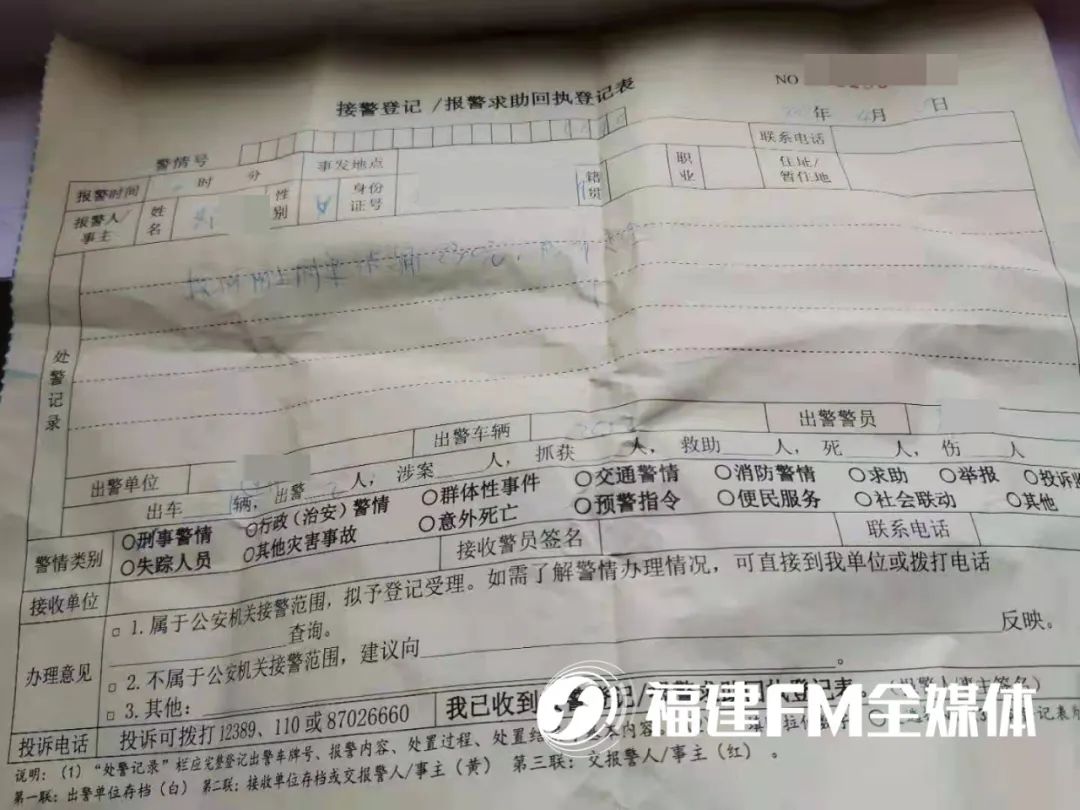 NO
接警登记 /报警求助回执登记表
年 4月 日
警情号
报警时间 时 分 事发地点 联系电话
报警人/事主 姓名 性别 女 身份证号 籍贯 职业 住址/暂住地
处警记录
出警单位 出警车辆 出警警员
出车 辆, 出警 人, 涉案 人, 抓获 人, 救助 人, 死 人, 伤 人
警情类别 ○刑事警情 ○行政（治安）警情 ○群体性事件 ○交通警情 ○消防警情 ○求助 ○举报 ○投诉
○失踪人员 ○其他灾害事故 ○意外死亡 ○预警指令 ○便民服务 ○社会联动 ○其他
接收单位 接收警员签名 联系电话
办理意见 □ 1.属于公安机关接警范围，拟予登记受理。如需了解警情办理情况，可直接到我单位或拨打电话
查询。
□ 2.不属于公安机关接警范围，建议向 反映。
□ 3.其他： 。
投诉电话 投诉可拨打12389、110或87026660 我已收到 登记/报警求助回执登记表。
说明：（1）“处警记录”栏应完整登记出警车牌号、报警内容、处置过程、处置结
第一联：出警单位存档（白） 第二联：接收单位存档或交报警人/事主（黄） 第三联：交报警人/事主（红）。
福建FM全媒体